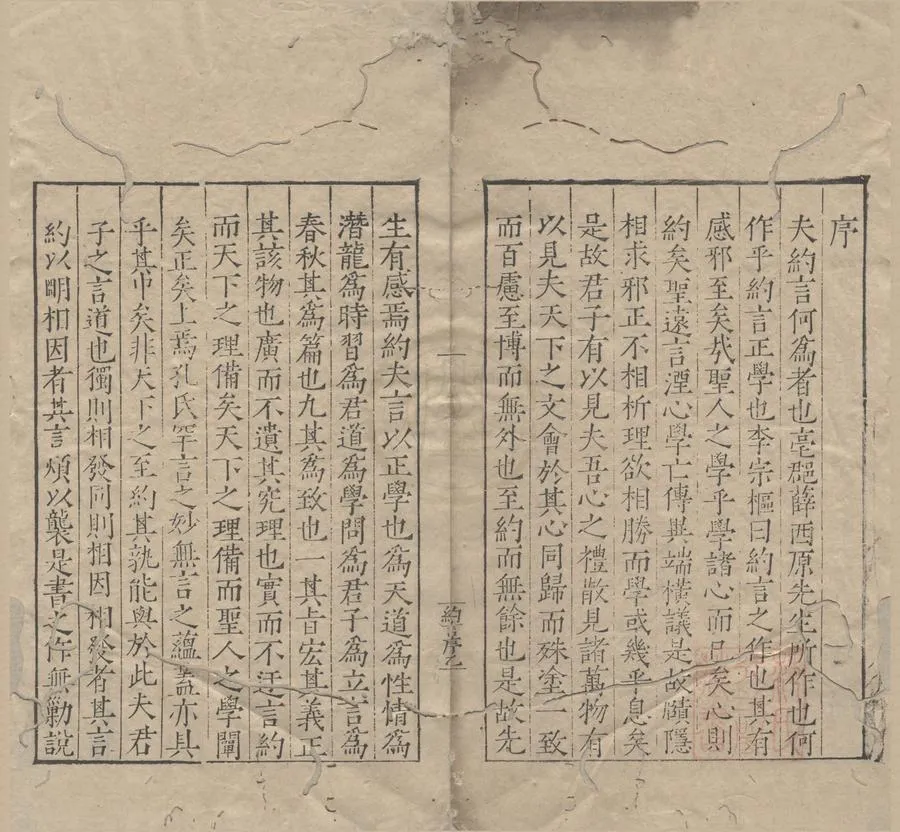 序
夫約言何爲者也亳郡薛西原先生所作也何
作乎約言正學也李宗樞曰約言之作也其有
感邪至矣㢤聖人之學乎學諸心而已矣心則
約矣聖遠言湮心學亡傳異端橫議是故賾隱
相求邪正不相析理欲相勝而學或幾乎息矣
是故君子有以見夫吾心之禮散見諸萬物有
以見夫天下之文會於其心同歸而殊塗一致
而百慮至博而無外也至約而無餘也是故先
約序
一
生有感焉約夫言以正學也爲天道爲性情爲
潛龍爲時習爲君道爲學問爲君子爲立言爲
春秋其爲篇也九其爲致也一其旨宏其義正
其該物也廣而不遺其究理也實而不迂言約
而天下之理備矣天下之理備而聖人之學闡
矣正矣上焉孔氏罕言之妙無言之蘊蓋亦具
乎其中矣非天下之至約其孰能與於此夫君
子之言道也獨則相發同則相因相發者其言
約以明相因者其言煩以襲是書之作無勦說